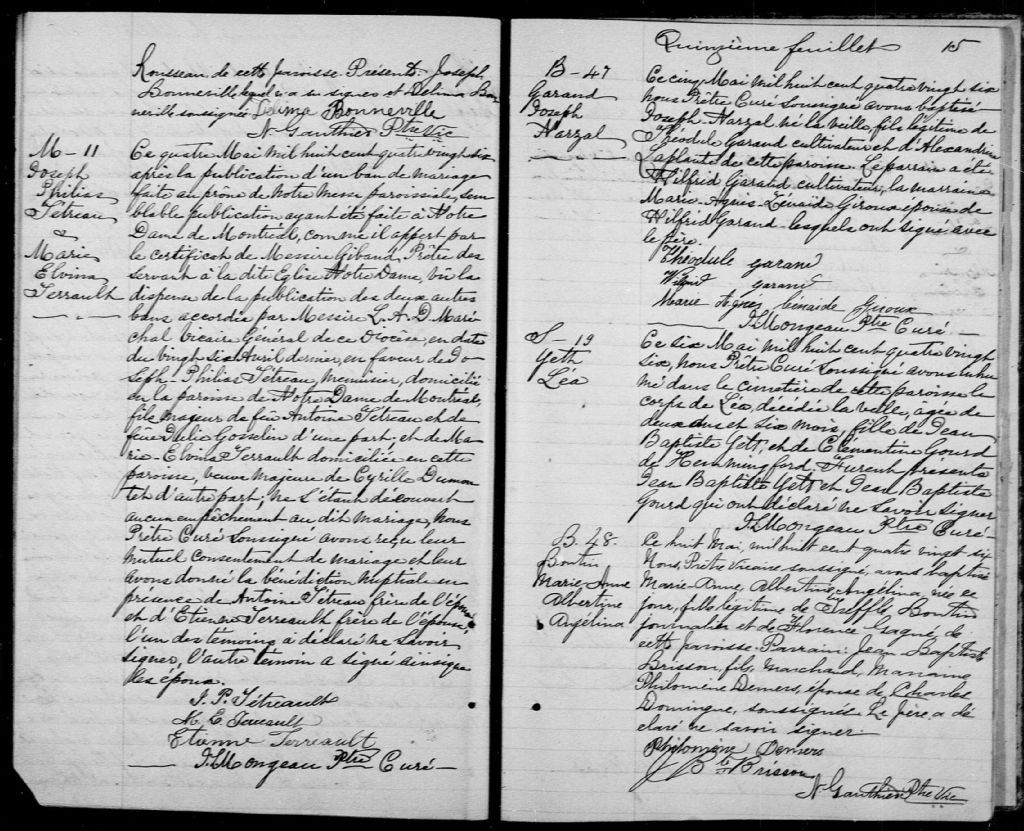 Rousseau de cette paroisse. Présents Joseph
Bonneville lequel a su signer et Delima Bon-
neville soussignée. Delima Bonneville
N. Gauthier Ptre Vic
M – 11
Joseph
Philias
Tétreau
&
Marie
Elvina
Terrault
Ce quatre Mai mil huit cent quatre vingt six
après la publication d'un ban de mariage
faite au prône de notre messe paroissiale, sem
blable publication ayant été faite à Notre
Dame de Montréal, comme il appert par
le certificat de Messire Giband, Prêtre des
servant à la dite Eglise Notre Dame, vu la
dispense de la publication des deux autres
bans accordée par Messire L. A. D. Maré
chal Vicaire Général de ce Diocèse, en date
du vingt six Avril dernier, en faveur de Jo-
seph-Philias Tétreau, menuisier, domicilié
en la paroisse de Notre Dame de Montréal,
fils majeur de feu Antoine Tétreau et de
feue Julie Gosselin d'une part; et de Ma
rie-Elvina Terrault domiciliée en cette
paroisse, veuve majeure de Cyrille Dumon
tet d'autre part; ne s'étant découvert
aucun empêchement au dit mariage, Nous
Prêtre Curé soussigné avons reçu leur
mutuel consentement de mariage et leur
avons donné la bénédiction nuptiale en
présence de Antoine Tétreau frère de l'époux
et d'Etienne Terreault frère de l'épouse,
l'un des témoins a déclaré ne savoir
signer, l'autre témoin a signé ainsi que
les époux.
J. P. Tétreault
M. E. Terreault
Etienne Terreault
J. Mongeau Ptre Curé –
Quinzième feuillet 15
B – 47
Garand
Joseph
Narzal
Ce cinq Mai mil huit cent quatre vingt six
nous Prêtre Curé soussigné avons baptisé
Joseph-Narzal né la veille, fils légitime de
Théodule Garand cultivateur et d'Alexandrine
Laplante de cette paroisse. Le parrain a été
Wilfrid Garand cultivateur, la marraine
Marie-Agnès-Zénaide Giroux épouse de
Wilfrid Garand lesquels ont signé avec
le père.
Théodule garand
Wilfrid garand
Marie Agnes Zénaide Giroux
J. Mongeau Ptre Curé –
S – 19
Yett
Léa
Ce six Mai mil huit cent quatre vingt
six, nous Prêtre Curé soussigné avons inhu
mé dans le cimetière de cette paroisse le
corps de Léa, décédée la veille, agée de
deux ans et six mois, fille de Jean
Baptiste Yett, et de Clémentine Gourd
de Hemmingford. Furent présents
Jean Baptiste Yett et Jean Baptiste
Gourd qui ont déclaré ne savoir signer
J. Mongeau Ptre Curé –
B. 48.
Boutin
Marie-Anne
Albertine
Angélina
Le huit Mai, mil huit cent quatre vingt six
Nous, Prêtre Vicaire soussigné, avons baptisé
Marie-Anne, Albertine, Angélina, née ce
jour, fille légitime de Teuffle Boutin
journalier et de Florence Gagné, de
cette paroisse. Parrain: Jean Baptiste
Brisson, fils, marchand, Marraine
Philomène Demers, épouse de Charles
Domingue, soussignés. Le père a dé
claré ne savoir signer.
Philomène Demers
J Bte Brisson
N. Gauthier Ptre Vic